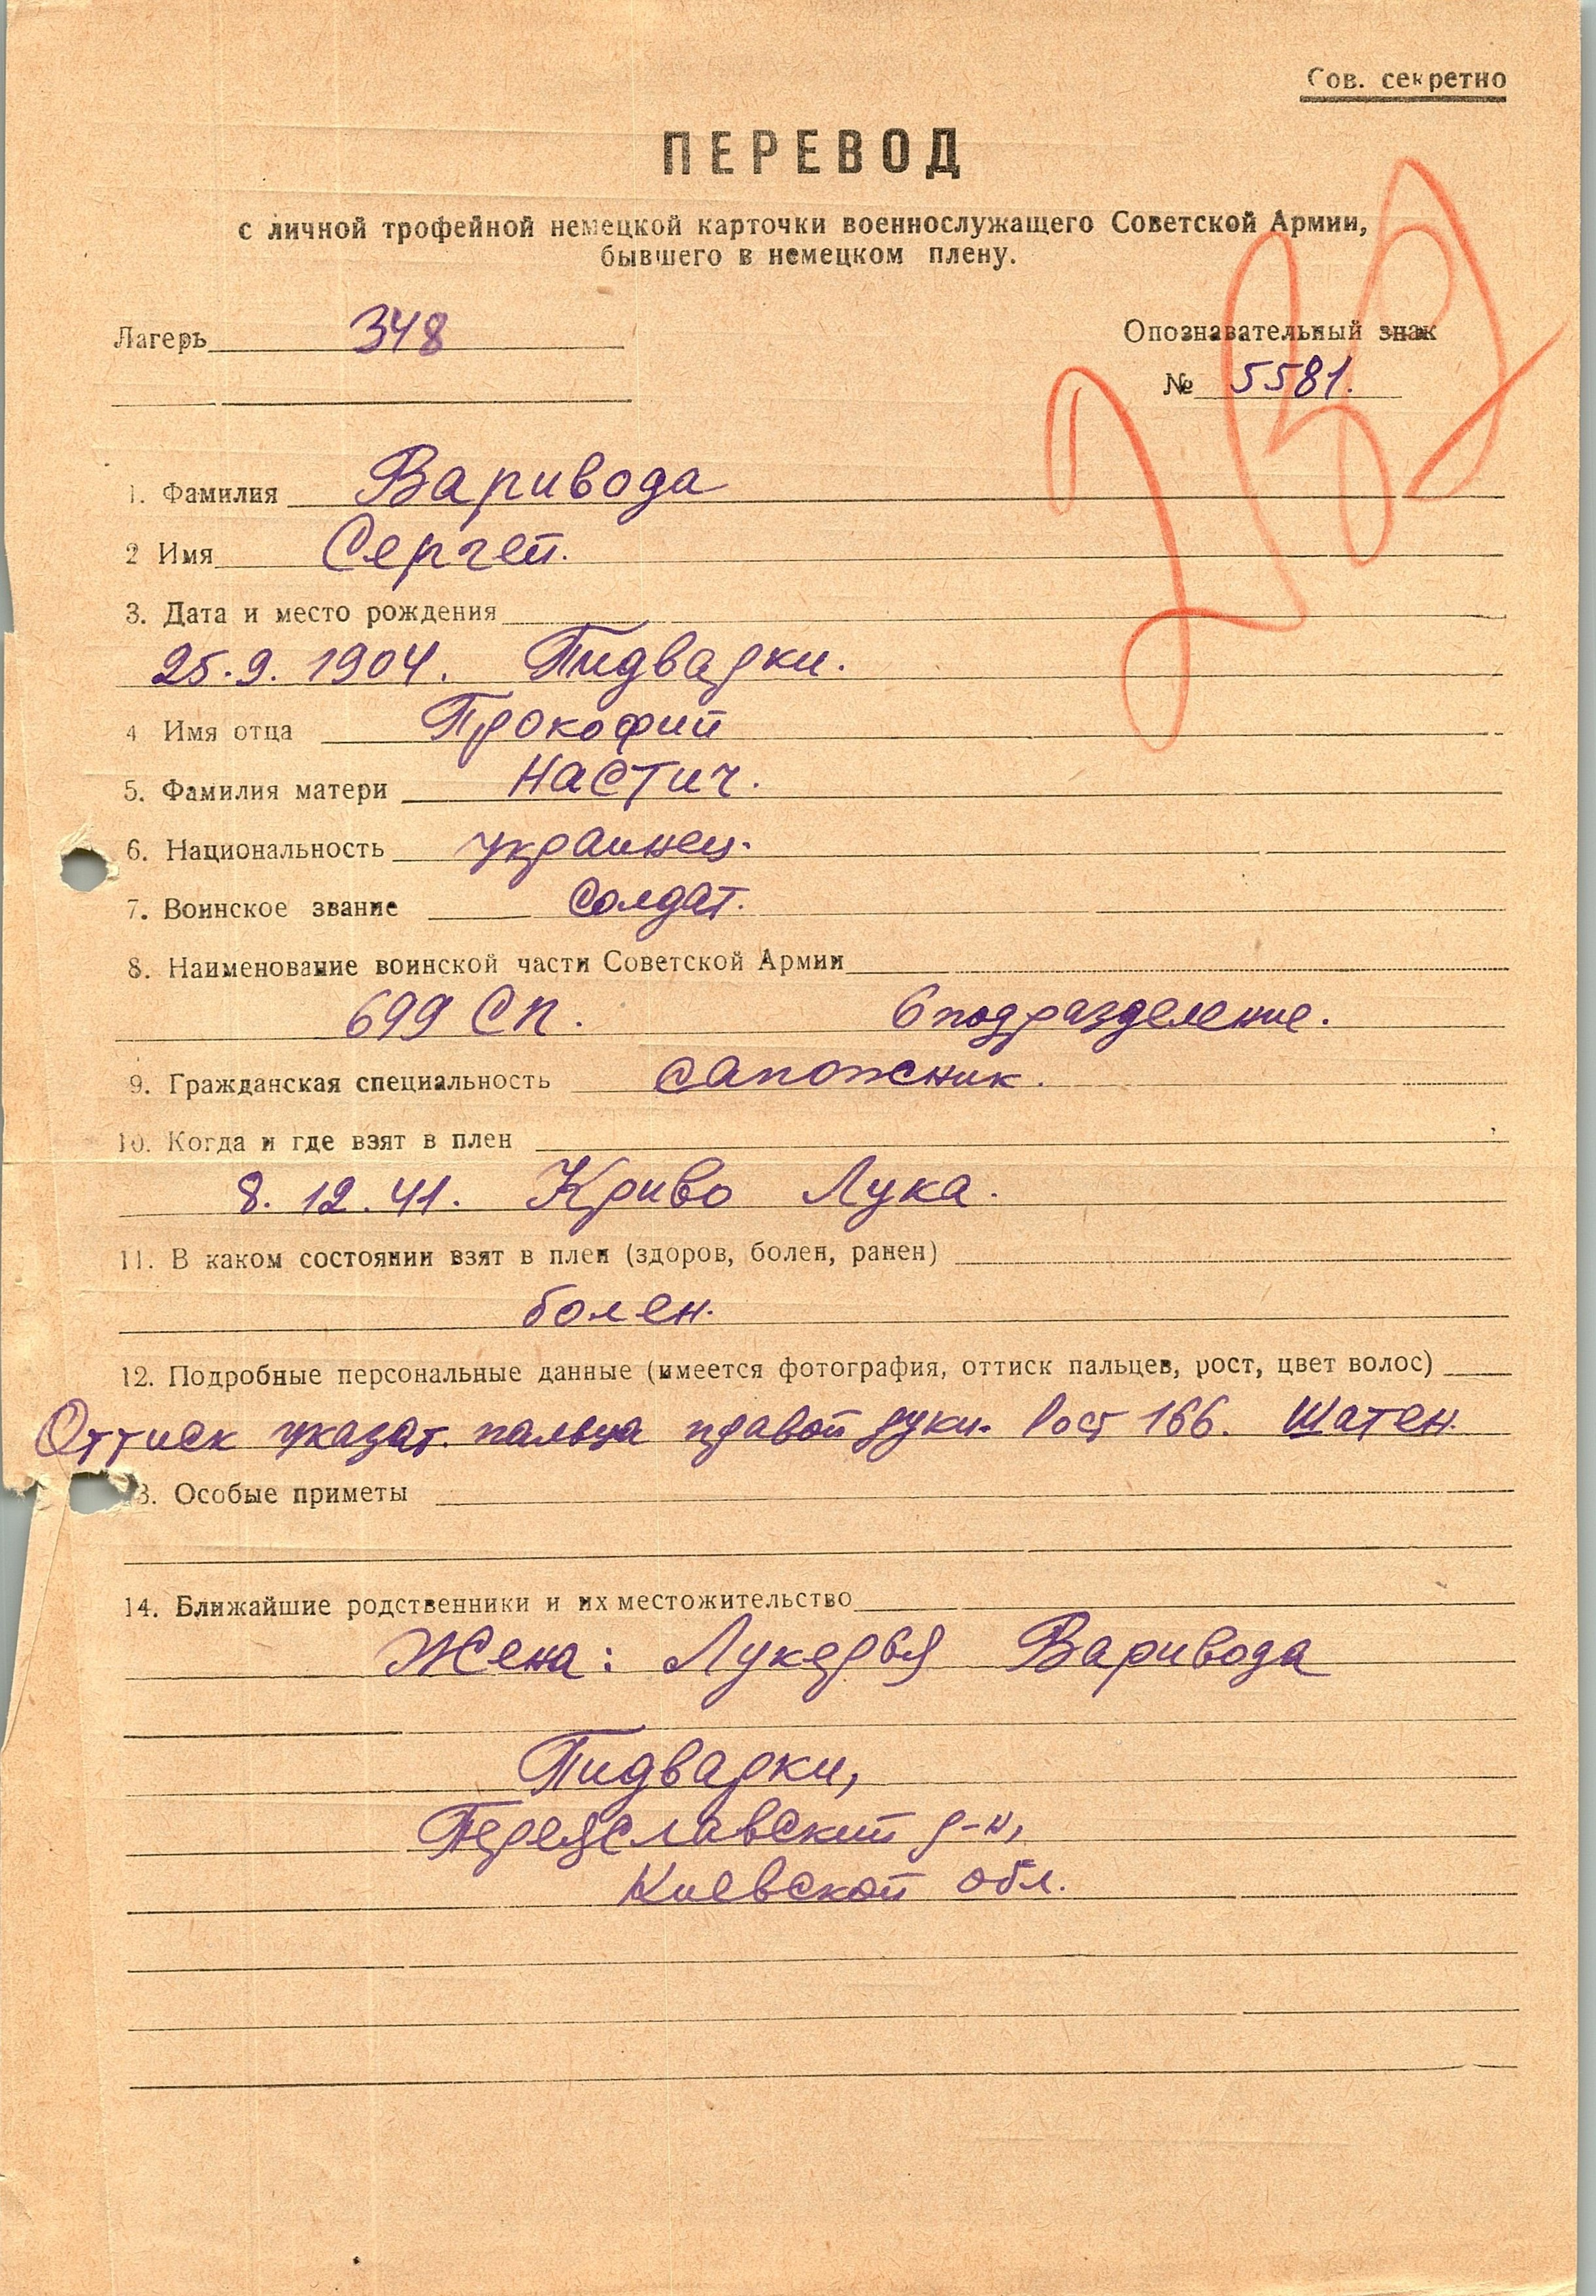 Сов. секретно
ПЕРЕВОД
с личной трофейной немецкой карточки военнослужащего Советской Армии,
бывшего в немецком плену.
Лагерь 348
Опознавательный знак
№ 5581.
1. Фамилия Варивода
2 Имя Сергей.
3. Дата и место рождения
25.9.1904. Пидварки.
4 Имя отца Прокофий
5. Фамилия матери Настич.
6. Национальность украинец.
7. Воинское звание солдат.
8. Наименование воинской части Советской Армии
699 СП. 6 подразделение.
9. Гражданская специальность сапожник.
10. Когда и где взят в плен
8.12.41. Криво Лука.
11. В каком состоянии взят в плен (здоров, болен, ранен)
болен.
12. Подробные персональные данные (имеется фотография, оттиск пальцев, рост, цвет волос)
Оттиск указат. пальца правой руки. Рост 166. Шатен.
3. Особые приметы
14. Ближайшие родственники и их местожительство
Жена: Лукерья Варивода
Пидварки,
Переяславский р-н,
Киевской обл.